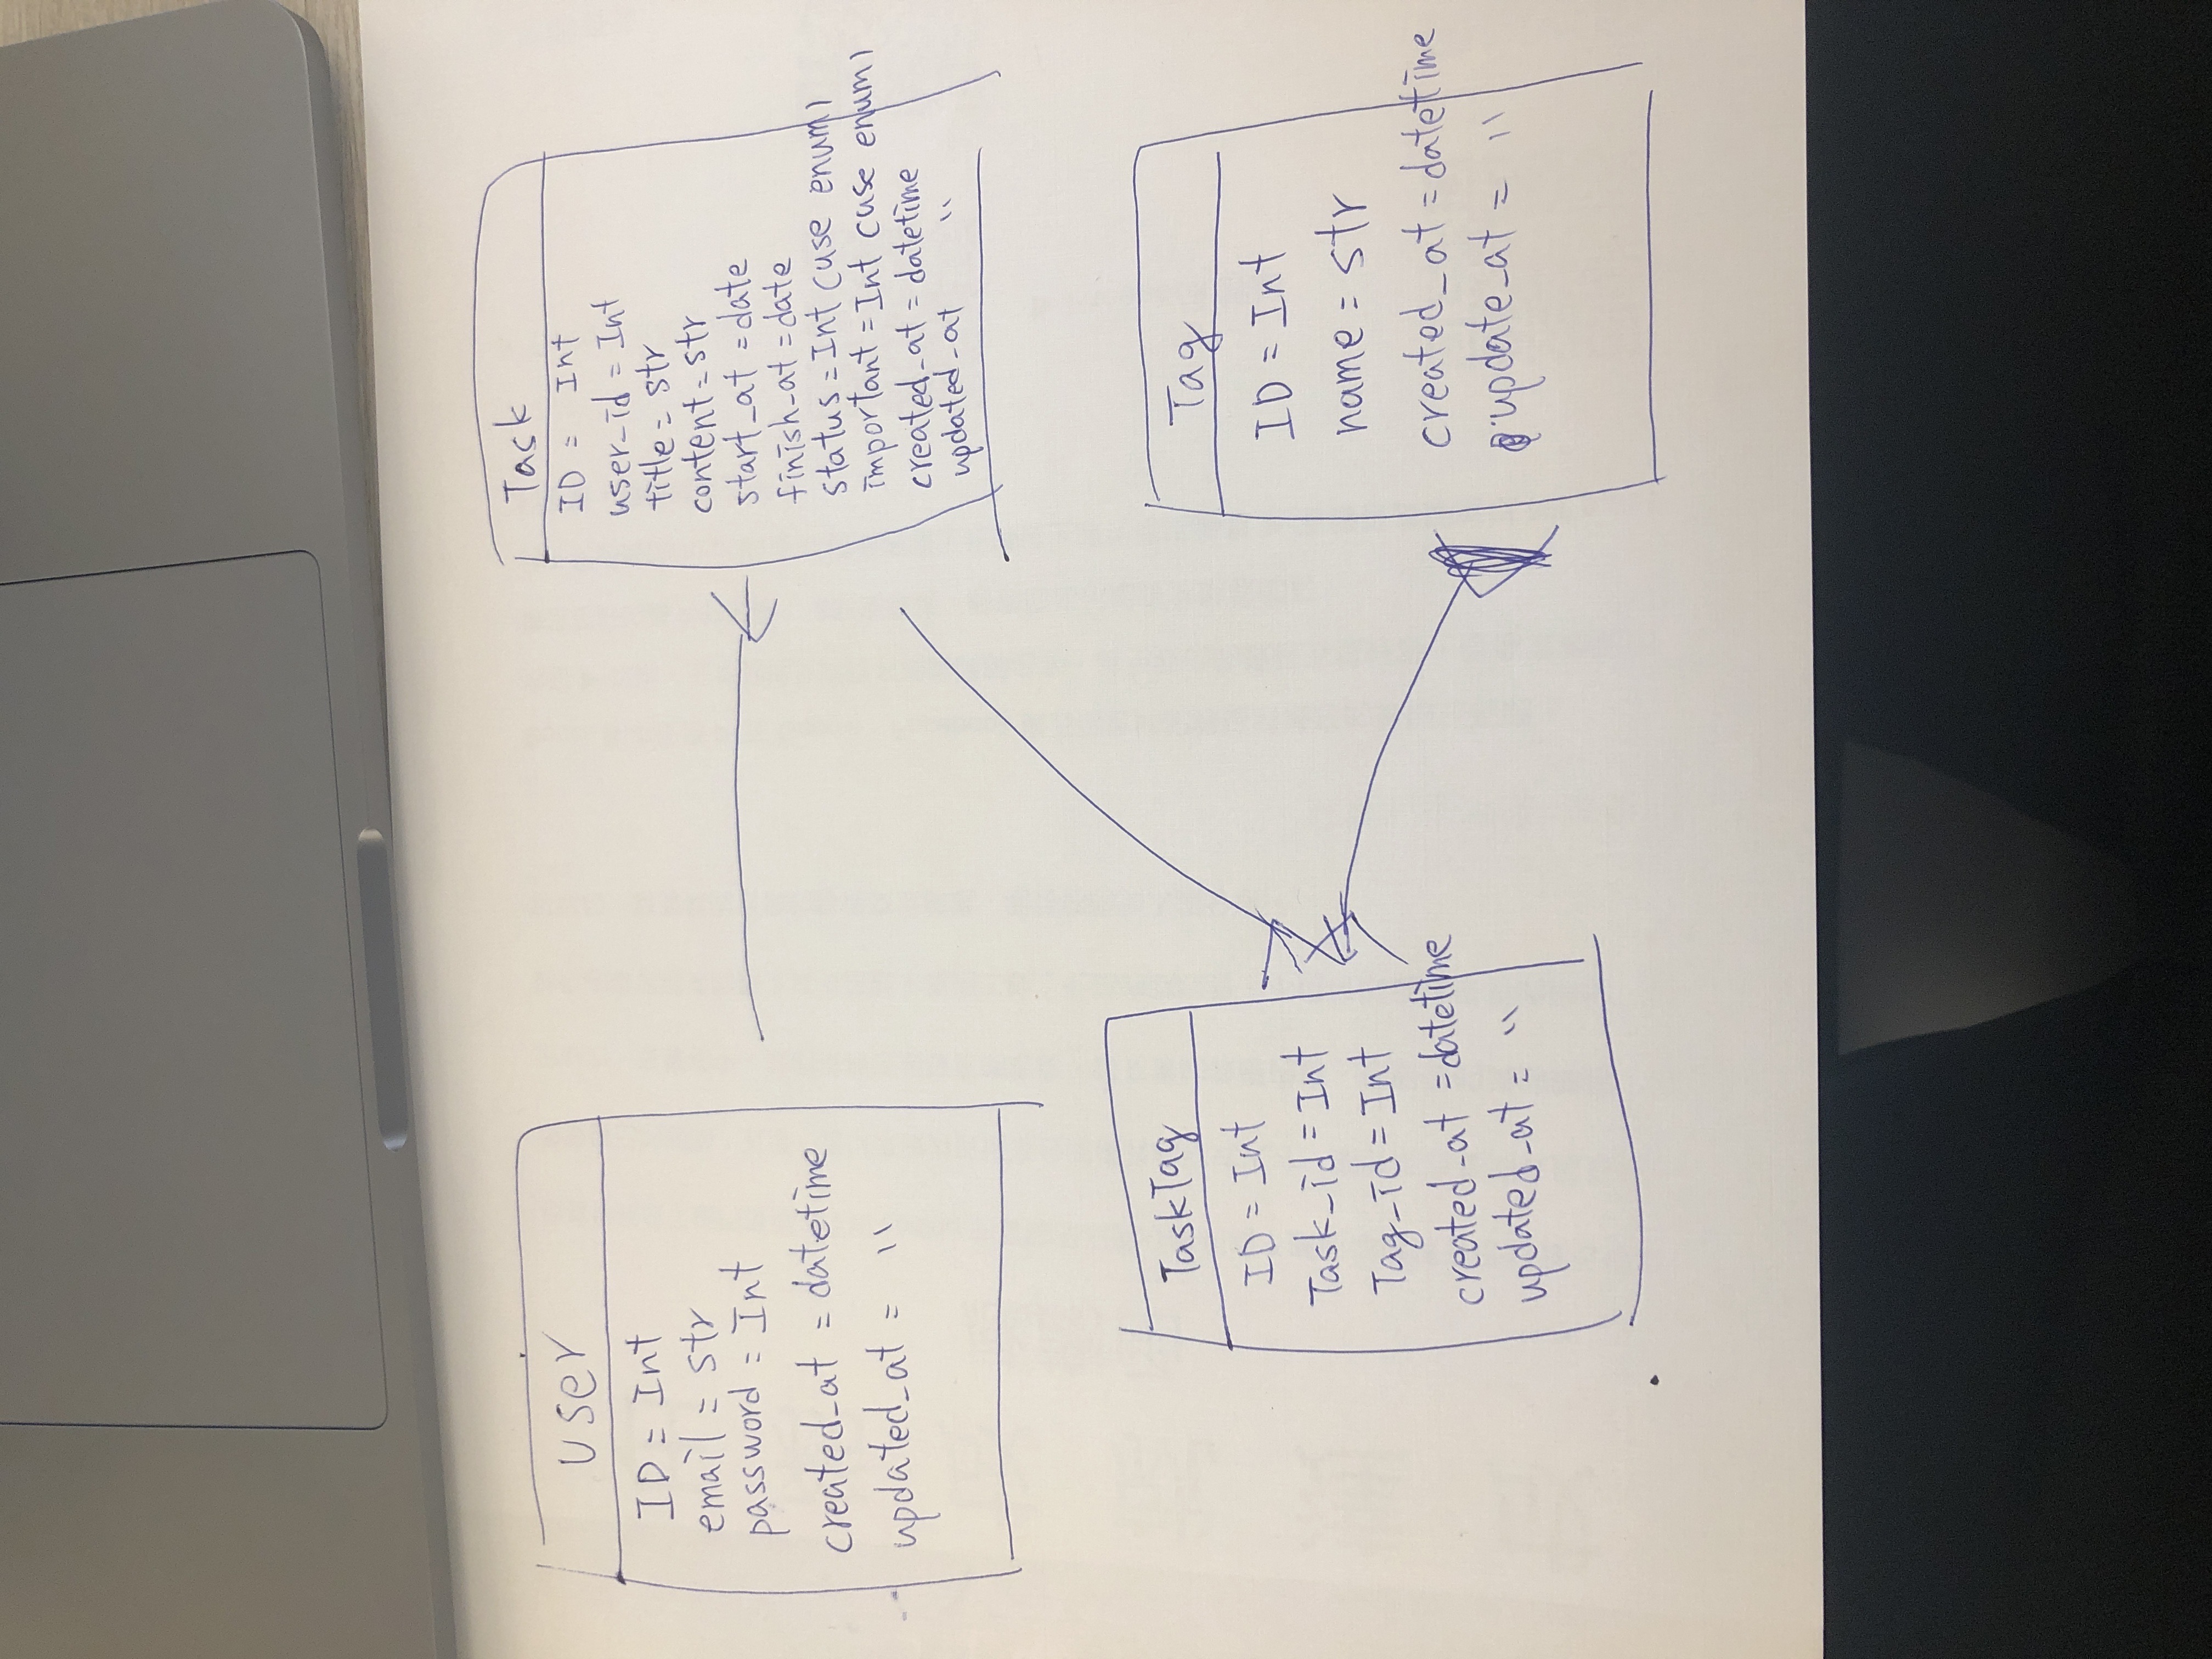 user
ID = Int
email = str
password = Int
created_at = datetime
updated_at = "
Task
ID = Int
user_id = Int
title = str
content = str
start_at = date
finish_at = date
status = Int (use enum)
important = Int (use enum)
created_at = datetime
updated_at "
TaskTag
ID = Int
Task_id = Int
Tag_id = Int
created_at = datetime
updated_at = "
Tag
ID = Int
name = str
created_at = datetime
update_at = "